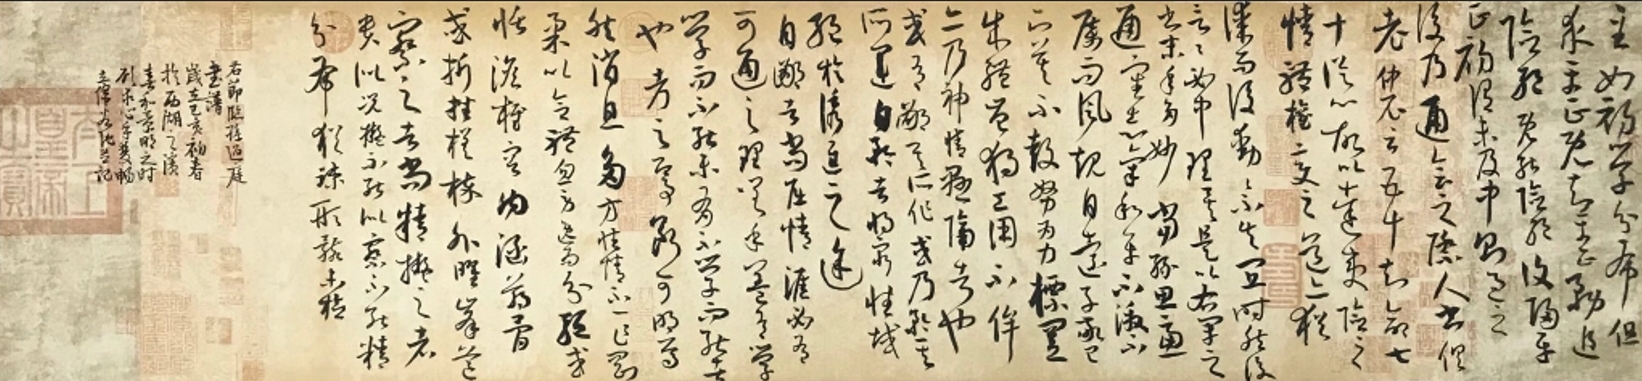 至如初學分布但
求平正既知平正務追
險絕既能險絕復歸平
正初謂未及中則過之
後乃通會之際人書俱
老仲尼云五十知命七
十從心故以達夷險之
情體權變之道亦猶
謀而後動動不失宜時然後
言言必中理矣是以右軍之
書末年多妙當緣思慮
通審志氣和平不激不
厲而風規自遠子敬已
下莫不鼓努為力標置
成體豈獨工用不侔
亦乃神情懸隔者也
或有鄙其所作或乃矜其
所運自矜者將窮性域
絕於誘進之途
自鄙者尚屈情涯必有
可通之理嗟乎蓋有學
學而不能未有不學而能者
也考之即事斷可明焉
然消息多方性情不一乍剛
柔以合體忽勞逸而分驅或
恬澹雍容內涵筋骨
或折挫槎枿外曜峰芒
察之者尚精擬之者
貴似況擬不能似察不能精
分布猶疏形骸未檢
右節臨孫過庭
書譜
歲在乙亥初春
於西湖之濱
春和景明之時
心手雙暢
記
太上皇帝之寶